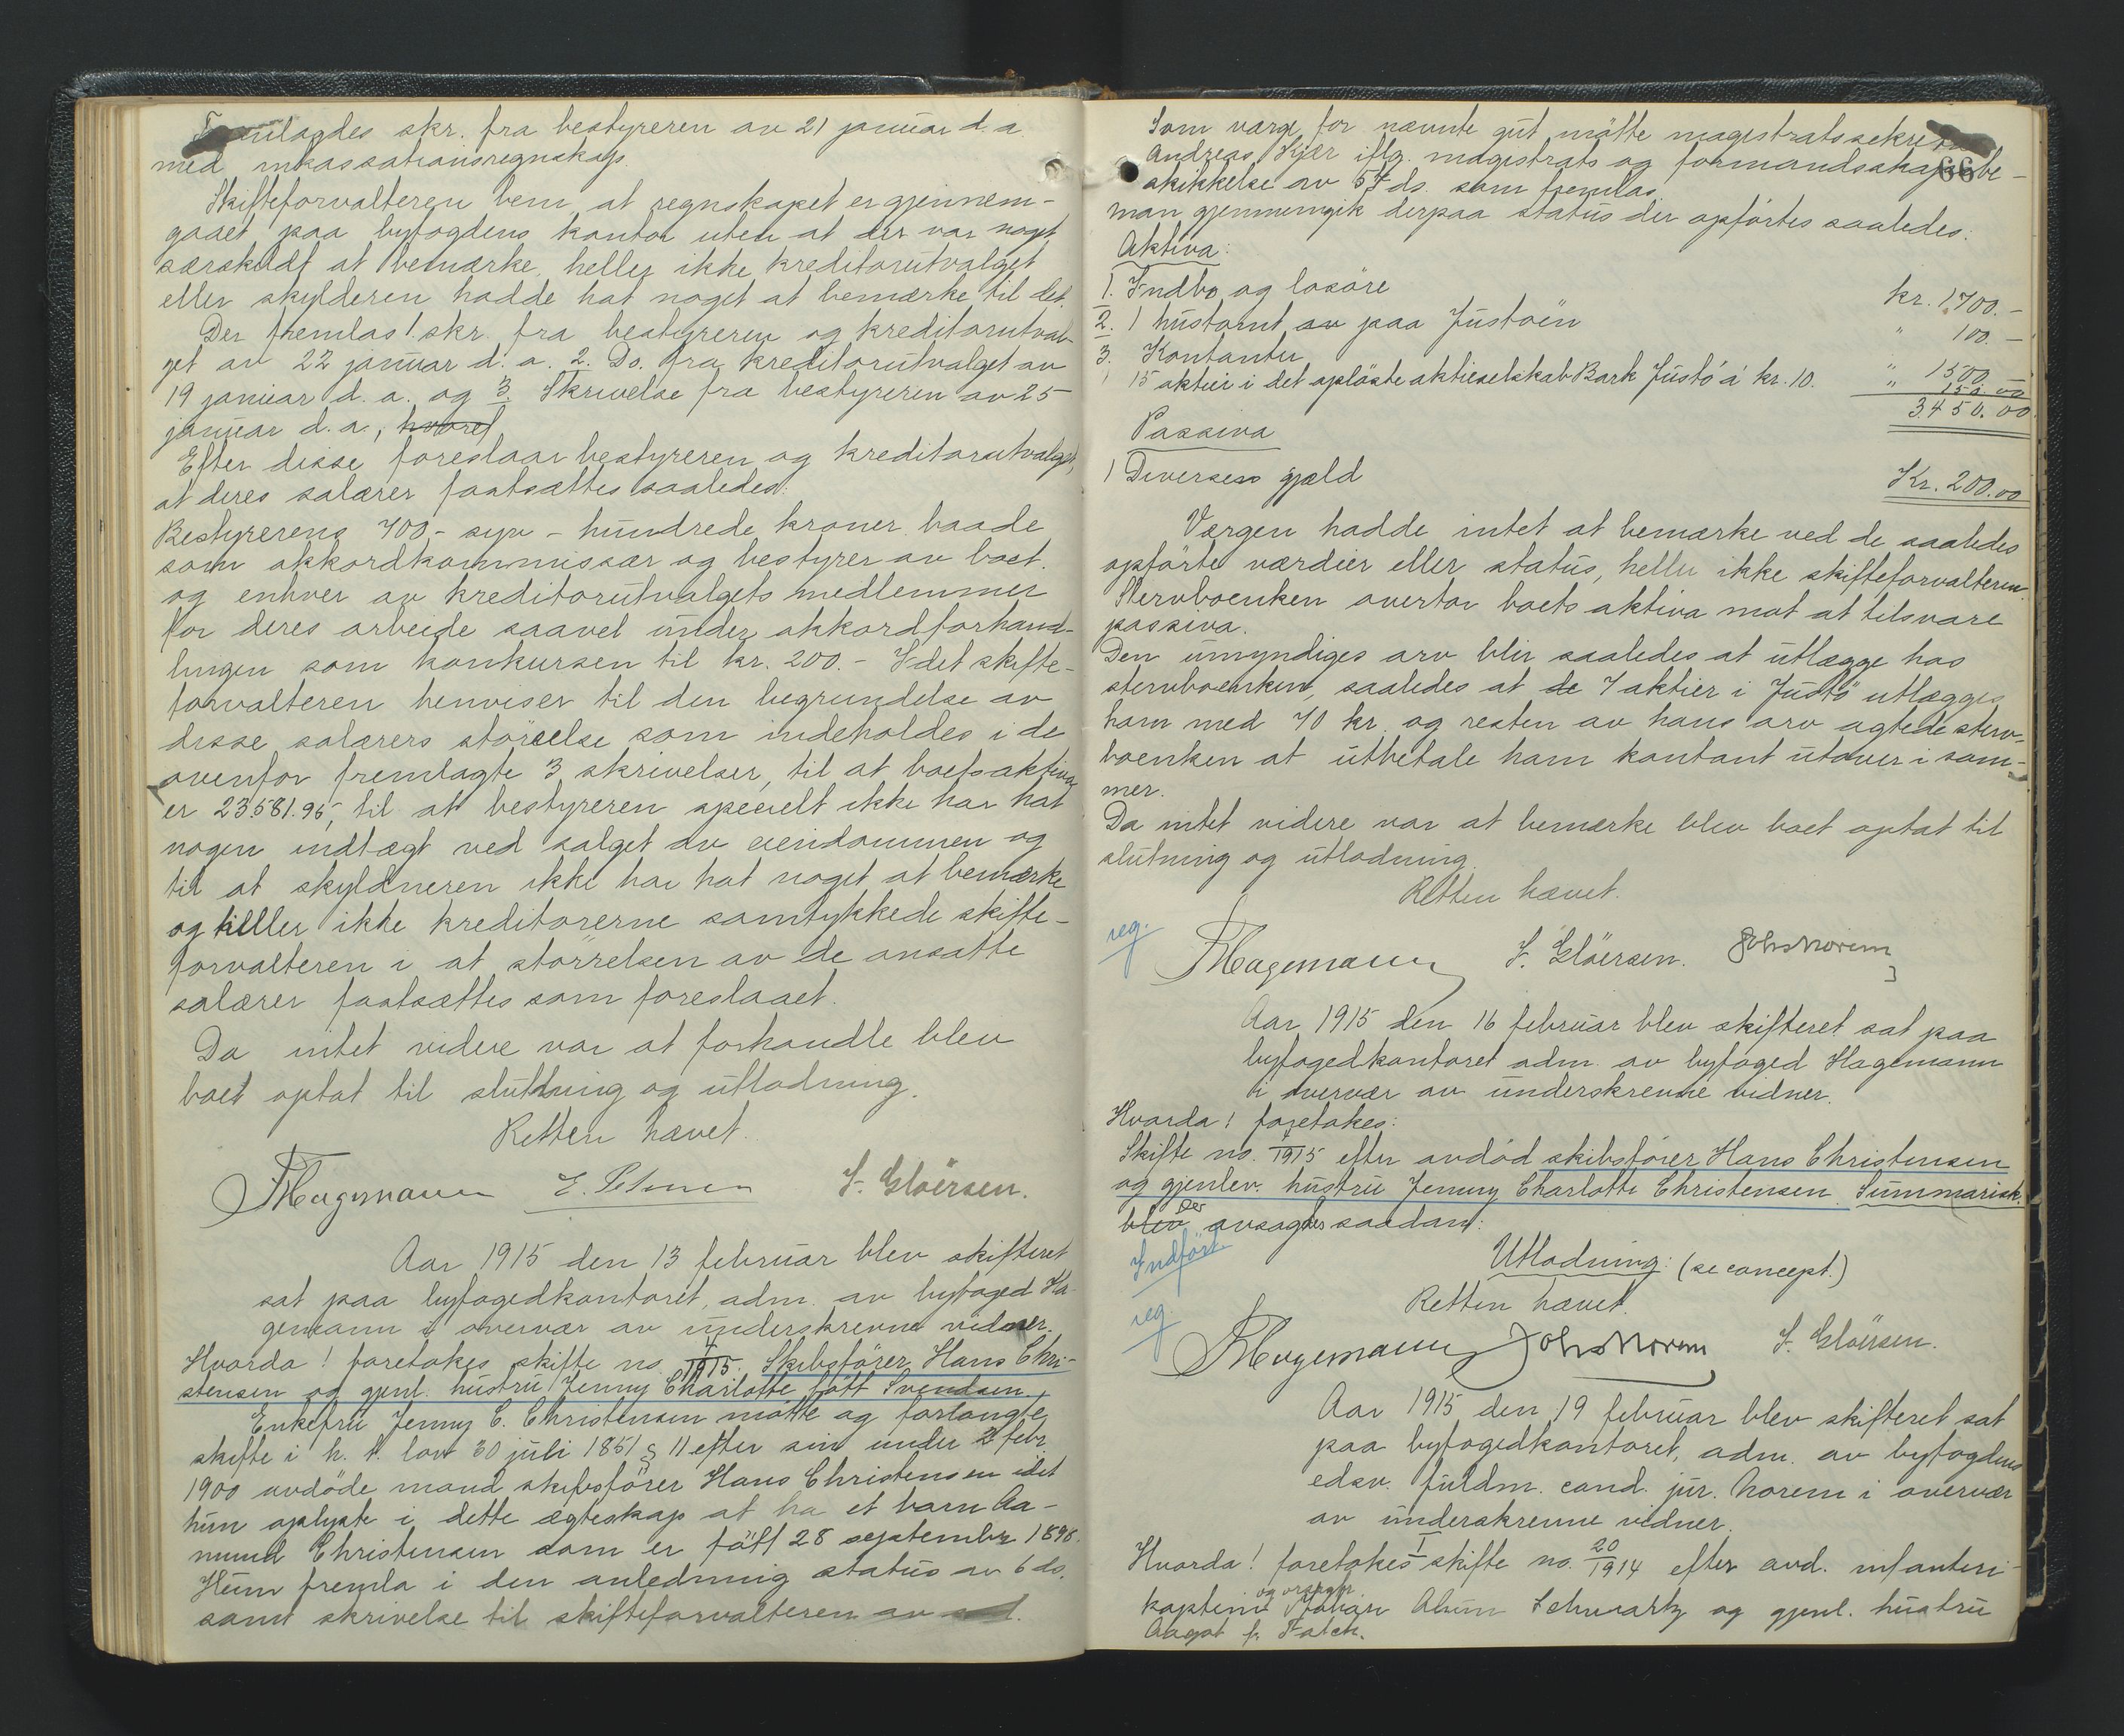 Fremlagdes skr. fra bestyreren av 21 januar d. a.
med inkassationsregnskap.
Skifteforvalteren bem. at regnskapet er gjennem-
gaaet paa byfogdens kontor uten at der var noget
særskildt at bemærke, heller ikke kreditorutvalget
eller skylderen hadde hat noget at bemærke til det.
Der fremlas 1. skr. fra bestyreren og kreditorutval-
get av 22 januar d. a. 2. Do. fra kreditorutvalget av
19 januar d. a. og 3. Skrivelse fra bestyreren av 25
januar d. a., hvoref
Efter disse foreslaar bestyreren og kreditorutvalget,
at deres salærer fastsættes saaledes:
Bestyrerens 700,- syv - hundrede kroner baade
som akkordkommissær og bestyrer av boet.
og enhver av kreditorutvalgets medlemmer
for deres arbeide saavel under akkordforhand-
lingen som konkursen til kr. 200.- Idet skifte-
forvalteren henviser til den begrundelse av
disse salærers størrelse som indeholdes i de
ovenfor fremlagte 3 skrivelser, til at boets aktiva
er 23581.95, til at bestyreren specielt ikke har hat
nogen indtægt ved salget av eiendommen og
til at skyldneren ikke har hat noget at bemærke
og heller ikke kreditorerne samtykkede skifte-
forvalteren i at størrelsen av de ansatte
salærer fastsættes som foreslaaet.
Da intet videre var at forhandle blev
boet optat til sluttning og utlodning.
Retten hævet.
FHagemann E. Petersen F. Gløersen.
Aar 1915 den 13 februar blev skifteret
sat paa byfogedkontoret, adm. av byfoged Ha-
gemann i overvær av underskrevne vidner.
Hvorda! foretokes skifte no. 4/1915. Skibsfører Hans Chri-
stensen og gjenl. hustru Jenny Charlotte født Svendsen.
Enkefru Jenny C. Christensen møtte og forlangte
skifte i h. t. lov 30 juli 1851 § 11 efter sin under 2 febr.
1900 avdøde mand skibsfører Hans Christensen idet
hun oplyste i dette ægteskap at ha et barn Aa-
mund Christensen som er født 28 september 1898.
Hun fremla i den anledning status av 6 ds.
samt skrivelse til skifteforvalteren av s. d.
66
Som værge for nævnte gut møtte magistratssekretær
Andreas Kjær iflg. magistrats og formandskaps be-
skikkelse av 5 ds. som fremlas.
Man gjennemgik derpaa status der opførtes saaledes:
Aktiva:
1. Indbo og løsøre kr. 1700.-
2. 1 hustomt av paa Justøen " 100.-
3. Kontanter " 1500
15 aktier i det opløste aktieselskab Bark Justø á kr. 10. " 150.00
3450.00
Passiva
1 Diverse gjæld Kr. 200.00
Værgen hadde intet at bemærke ved de saaledes
opførte værdier eller status, heller ikke skifteforvalteren.
Stervboenken overtar boets aktiva mot at tilsvare
passiva.
Den umyndiges arv blir saaledes at utlægge hos
stervboenken, saaledes at de 7 aktier i Justø utlægges
ham med 70 kr. og resten av hans arv agtede sterv-
boenken at utbetale ham kontant utover i som-
mer.
Da intet videre var at bemærke blev boet optat til
slutning og utlodning.
Retten hævet.
reg.
FHagemann F. Gløersen. Johs Norem
Aar 1915 den 16 februar blev skifteret sat paa
byfogedkontoret adm. av byfoged Hagemann
i overvær av underskrevne vidner.
Hvorda! foretokes:
Skifte no. 4/1915 efter avdød skibsfører Hans Christensen
og gjenlev. hustru Jenny Charlotte Christensen. Summarisk.
blev Der avsagdes saadan:
Indført
Utlodning: (se concept.)
Retten hævet.
reg
FHagemann Johs Norem F. Gløersen.
Aar 1915 den 19 februar blev skifteret sat
paa byfogedkontoret, adm. av byfogdens
edsv. fuldm. cand. jur. Norem i overvær
av underskrevne vidner.
Hvorda! foretokes I skifte no. 20/1914 efter avd. infanteri-
kaptein Johan Schwartz og gjenl. hustru
Aagot f. Falch.